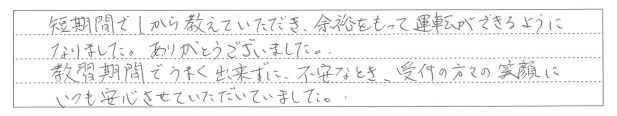 短期間で1から教えていただき、余裕をもって運転ができるように
なりました。ありがとうございました。
教習期間でうまく出来ずに、不安なとき、受付の方々の笑顔に
いつも安心させていただいていました。